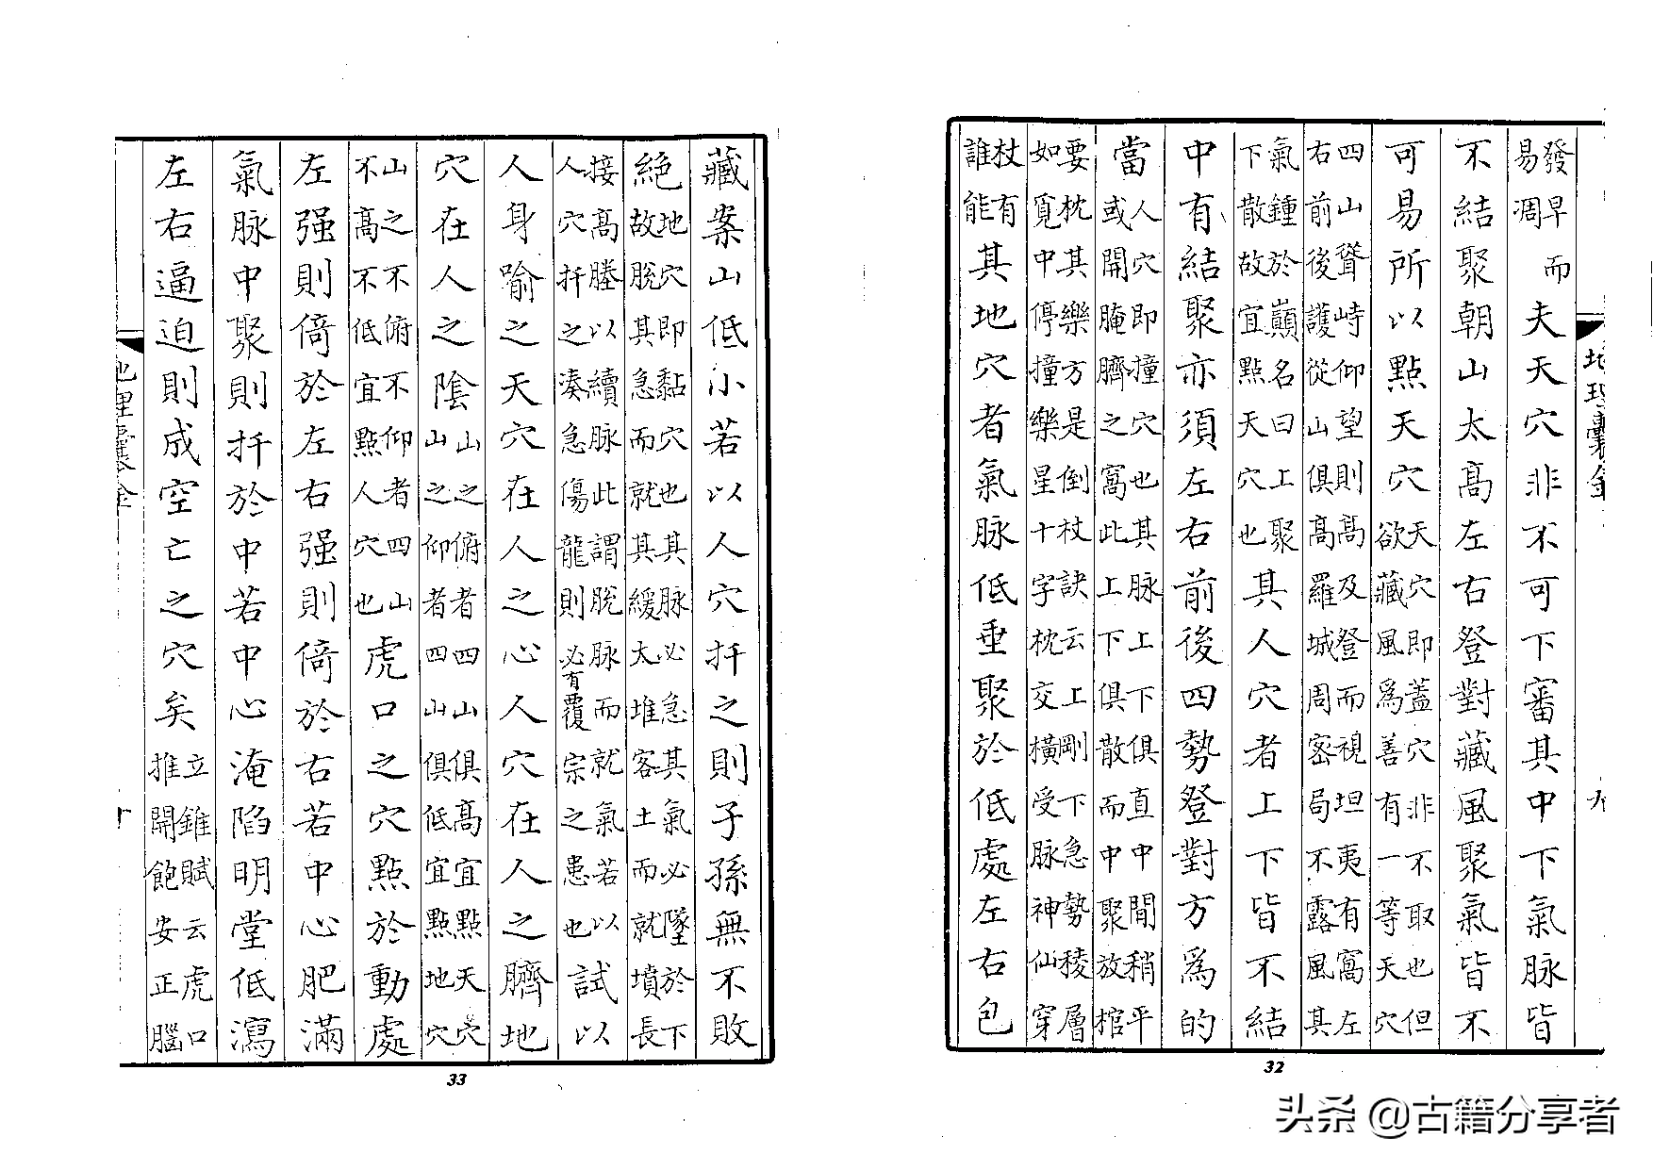 地理囊金
九
發早而
易凋
夫天穴非不可下審其中下氣脉皆
不結聚朝山太高左右登對藏風聚氣皆不
可易所以點天穴
天穴即蓋穴非不取也但
欲藏風爲善有一等天穴
四山聳峙仰望則高及登而視坦夷有窩左
右前後護從山俱高羅城周密局不露風其
氣鍾於巔名曰上聚
下散故宜點天穴也
其人穴者上下皆不結
中有結聚亦須左右前後四勢登對方爲的
當
人穴即撞穴也其脉上下俱直中間稍平
或開腌臍之窩此上下俱散而中聚放棺
要枕其樂方是倒杖訣云上剛下急勢稜層
如覓中停撞樂星十字枕交橫受脉神仙穿
杖有
誰能
其地穴者氣脉低垂聚於低處左右包
32
藏案山低小若以人穴扦之則子孫無不敗
絕
地穴即黏穴也其脉必急其氣必墜於下
故脫其急而就其緩大堆客土而就墳長
接高塍以續脉此謂脫脉而就氣若以
人穴扦之湊急傷龍則必有覆宗之患也
試以
人身喻之天穴在人之心人穴在人之臍地
穴在人之陰
山之俯者四山俱高宜點天穴
山之仰者四山俱低宜點地穴
山之不俯不仰者四山
不高不低宜點人穴也
虎口之穴點於動處
左强則倚於左右强則倚於右若中心肥滿
氣脉中聚則扦於中若中心淹陷明堂低瀉
左右逼迫則成空亡之穴矣
立錐賦云虎口
推開飽安正腦
地理囊金
十
33
头条 @古籍分享者